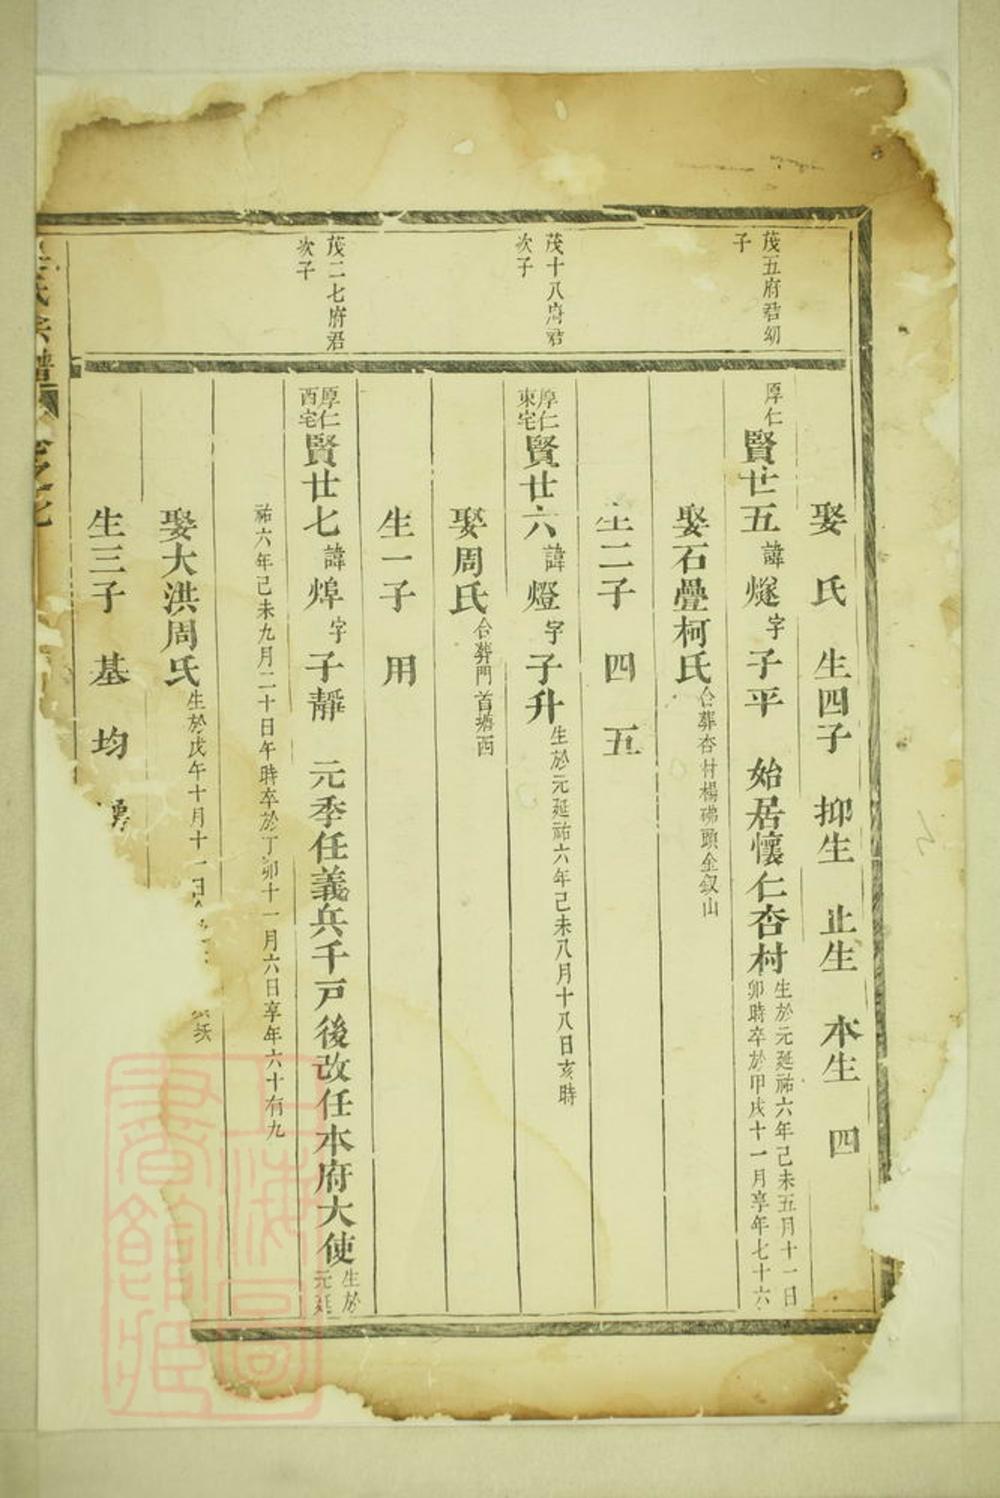 娶 氏 生四子 抑生 止生 本生 四
茂五府君幼
子
厚仁
賢廿五 諱 燧 字 子平 始居懷仁杏村
生於元延祐六年己未五月十一日
卯時卒於甲戌十一月享年七十六
娶石疊柯氏 合葬杏村楊 頭金釵山
生二子 四 五
茂十八府君
次子
厚仁
東宅
賢廿六 諱 燈 字 子升 生於元延祐六年己未八月十八日亥時
娶周氏 合葬門首塘西
生一子 用
茂二七府君
次子
厚仁
西宅
賢廿七 諱 焯 字 子靜 元季任義兵千戸後改任本府大使
生於
元延
祐六年己未九月二十日午時卒於丁卯十一月六日享年六十有九
娶大洪周氏 生於戊午十月十一日
生三子 基 均
氏宗譜
上海圖書館藏